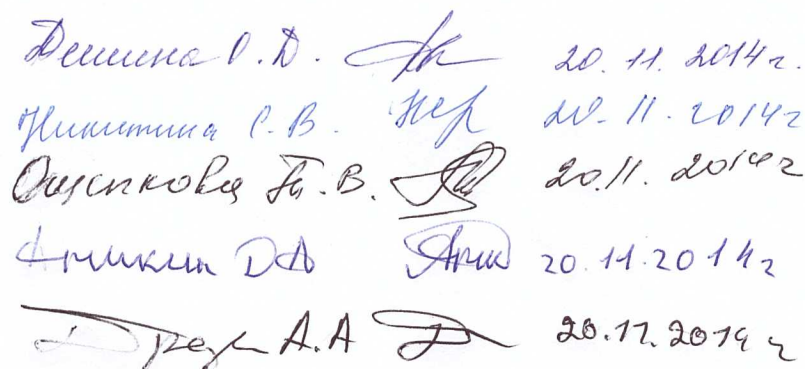 Демина О.Д. 20.11.2014г.
Никитина С.В. 20.11.2014г
Ощепкова Т.В. 20.11.2014г
Аникин ДА 20.11.2014г
А.А 20.11.2014г